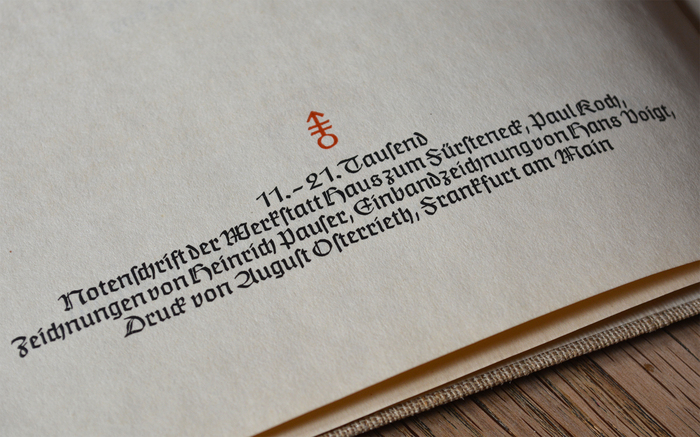 11.–21. Tausend
Notenschrift der Werkstatt Haus zum Fürsteneck, Paul Koch,
Zeichnungen von Heinrich Pauser, Einbandzeichnung von Hans Voigt,
Druck von August Osterrieth, Frankfurt am Main